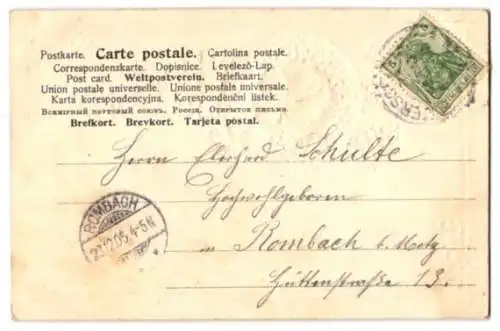 Postkarte. Carte postale. Cartolina postale.
Correspondenzkarte. Dopisnice. Levelező-Lap.
Post card. Weltpostverein. Briefkaart.
Union postale universelle. Unione postale universale.
Karta korespondencyjna. Korespondenční lístek.
Всемірный почтовый союзъ. Россія. Открытое письмо.
Brefkort. Brevkort. Tarjeta postal.
Herrn Eberhard Schulte
Hochwohlgeboren
in Rombach b. Metz
Hüttenstraße 13.
ROMBACH